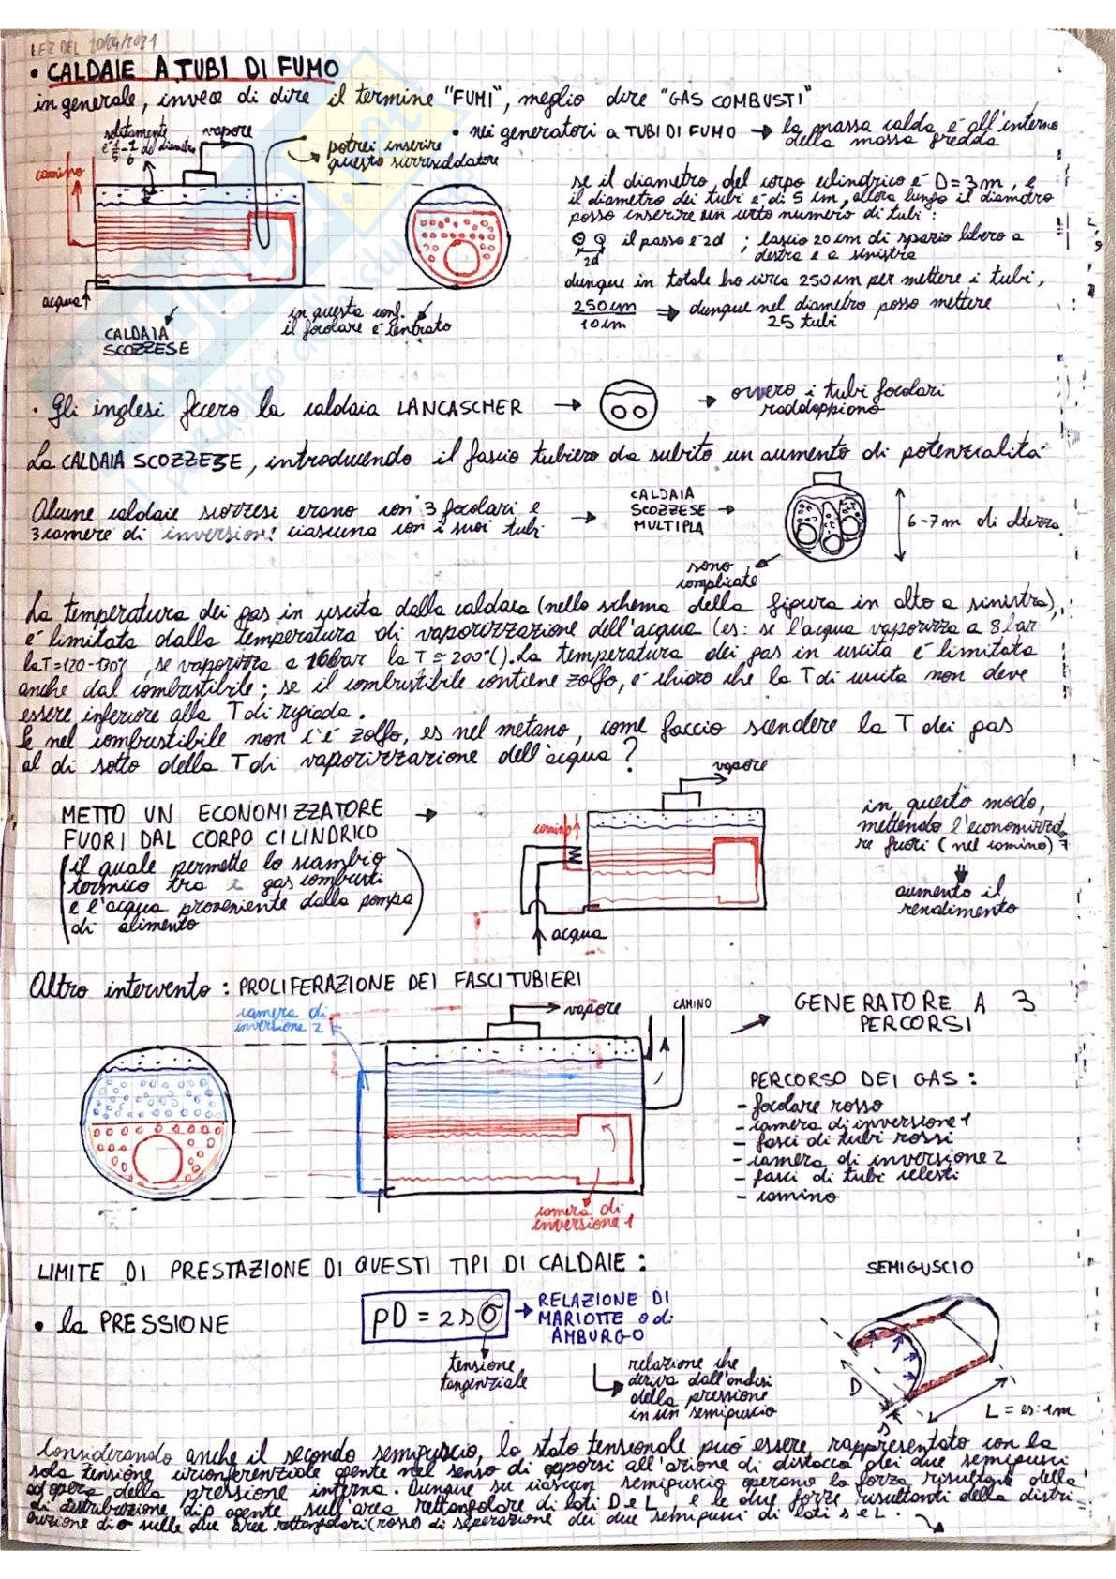 LEZ DEL 20/04/2021
• CALDAIE A TUBI DI FUMO
in generale, invece di dire il termine "FUMI", meglio dire "GAS COMBUSTI"
solitamente
è 1/5 - 1/6 del diametro
vapore
camino
potrei inserire
questo surriscaldatore
acqua
CALDAIA
SCOZZESE
in questa conf.
il focolare è centrato
• nei generatori a TUBI DI FUMO → la massa calda è all'interno
della massa fredda
se il diametro del corpo cilindrico è D = 3 m, e
il diametro dei tubi è di 5 cm, allora lungo il diametro
posso inserire un certo numero di tubi:
2d
il passo è 2d ; lascio 20 cm di spazio libero a
destra e a sinistra
dunque in totale ho circa 250 cm per mettere i tubi,
250 cm
10 cm
⇒ dunque nel diametro posso mettere
25 tubi
• Gli inglesi fecero la caldaia LANCASCHER → → ovvero i tubi focolari
raddoppiano
La CALDAIA SCOZZESE, introducendo il fascio tubiero da subito un aumento di potenzialità
Alcune caldaie scozzesi erano con 3 focolari e
3 camere di inversione; ciascuna con i suoi tubi
→ CALDAIA
SCOZZESE →
MULTIPLA
6-7 m di altezza
sono
complicate
La temperatura dei gas in uscita dalla caldaia (nello schema della figura in alto a sinistra),
è limitata dalla temperatura di vaporizzazione dell'acqua (es: se l'acqua vaporizza a 8 bar
la T=120-130°, se vaporizza a 16 bar la T = 200°C). La temperatura dei gas in uscita è limitata
anche dal combustibile; se il combustibile contiene zolfo, è chiaro che la T di uscita non deve
essere inferiore alla T di rugiada.
Se nel combustibile non c'è zolfo, es nel metano, come faccio scendere la T dei gas
al di sotto della T di vaporizzazione dell'acqua?
METTO UN ECONOMIZZATORE →
FUORI DAL CORPO CILINDRICO
(il quale permette lo scambio
termico tra i gas combusti
e l'acqua proveniente dalla pompa
di alimento)
vapore
camino
acqua
in questo modo,
mettendo l'economizzato
re fuori (nel camino)
⇓
aumento il
rendimento
Altro intervento: PROLIFERAZIONE DEI FASCI TUBIERI
camera di
inversione 2
vapore
CAMINO
camera di
inversione 1
GENERATORE A 3
PERCORSI
PERCORSO DEI GAS:
- focolare rosso
- camera di inversione 1
- fasci di tubi rossi
- camera di inversione 2
- fasci di tubi celesti
- camino
LIMITE DI PRESTAZIONE DI QUESTI TIPI DI CALDAIE:
• la PRESSIONE
pD = 2sσ
tensione
tangenziale
→ RELAZIONE DI
MARIOTTE o di
AMBURGO
relazione che
deriva dall'analisi
della pressione
in un semiguscio
SEMIGUSCIO
D
s
L
L = es: 1m
Considerando anche il secondo semiguscio, lo stato tensionale può essere rappresentato con la
sola tensione circonferenziale agente nel senso di opporsi all'azione di distacco dei due semigusci
ad opera della pressione interna. Dunque su ciascun semiguscio operano la forza risultante della
di distribuzione di p agente sull'area rettangolare di lati D e L, e le due forze risultanti della distri
buzione di σ sulle due aree rettangolari (rosse) di separazione dei due semigusci di lati s e L.